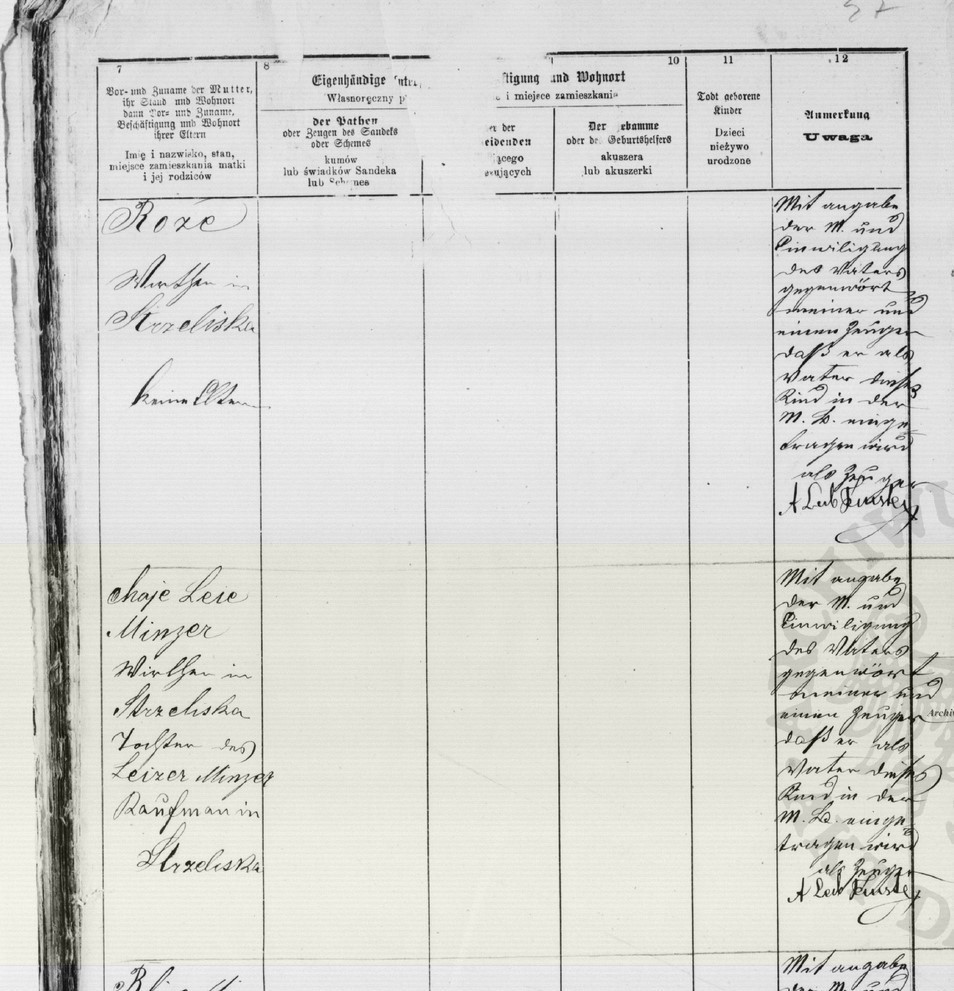 7
Vor- und Zuname der Mutter,
ihr Stand und Wohnort
dann Vor- und Zuname,
Beschäftigung und Wohnort
ihrer Eltern
Imię i nazwisko, stan,
miejsce zamieszkania matki
i jej rodziców
8
Eigenhändige
Własnoręczny
der Pathen
oder Zeugen des Sandeks
oder Schemes
kumów
lub świadków Sandeka
tigung und Wohnort
i miejsce zamieszkania
er der
eidenden
10
Der
oder des Geburtshelfers
akuszera
lub akuszerki
11
Todt geborene
Kinder
Dzieci
nieżywo
urodzone
12
Anmerkung
Uwaga
Roze
Wirthen in
Strzeliska
keine Eltern
Mit angabe
der M. und
Einwiligung
des Vaters
gegenwört
meiner und
einen Zeugen
daß er als
Vater dieses
Kind in der
M. B. einge
tragen wird
als Zeuge
A Leib
Chaje Leie
Minzer
Wirthen in
Strzeliska
Tochter des
Leizer Minzer
Kaufman in
Strzeliska
Mit angabe
der M. und
Einwiligung
des Vaters
gegenwört
meiner und
einen Zeugen
daß er als
Vater dieses
Kind in der
M. B. einge
tragen wird
als Zeuge
A Leib
Mit angabe
der M. und